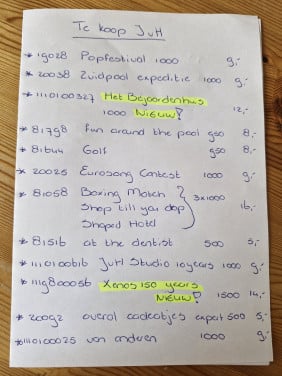 Te koop JvH
* 19028 Popfestival 1000 9,-
* 20038 Zuidpool expeditie 1000 9,-
* 1110100327 Het Bejaardenhuis
1000 Nieuw! 12,-
* 81798 Fun around the pool 950 8,-
* 81644 Golf 950 8,-
* 20025 Eurosong Contest 1000 9,-
* 81058 Boxing Match
Shop till you drop } 3x1000 16,-
Shaped Hotel
* 81516 at the dentist 500 5,-
* 1110100616 JvH Studio 10 years 1000 9,-
* 1119800056 Xenos 150 years
Nieuw! 1500 14,-
* 20092 overal cadeautjes expert 500 5,-
* 1110100025 van anderen 1000 9,-